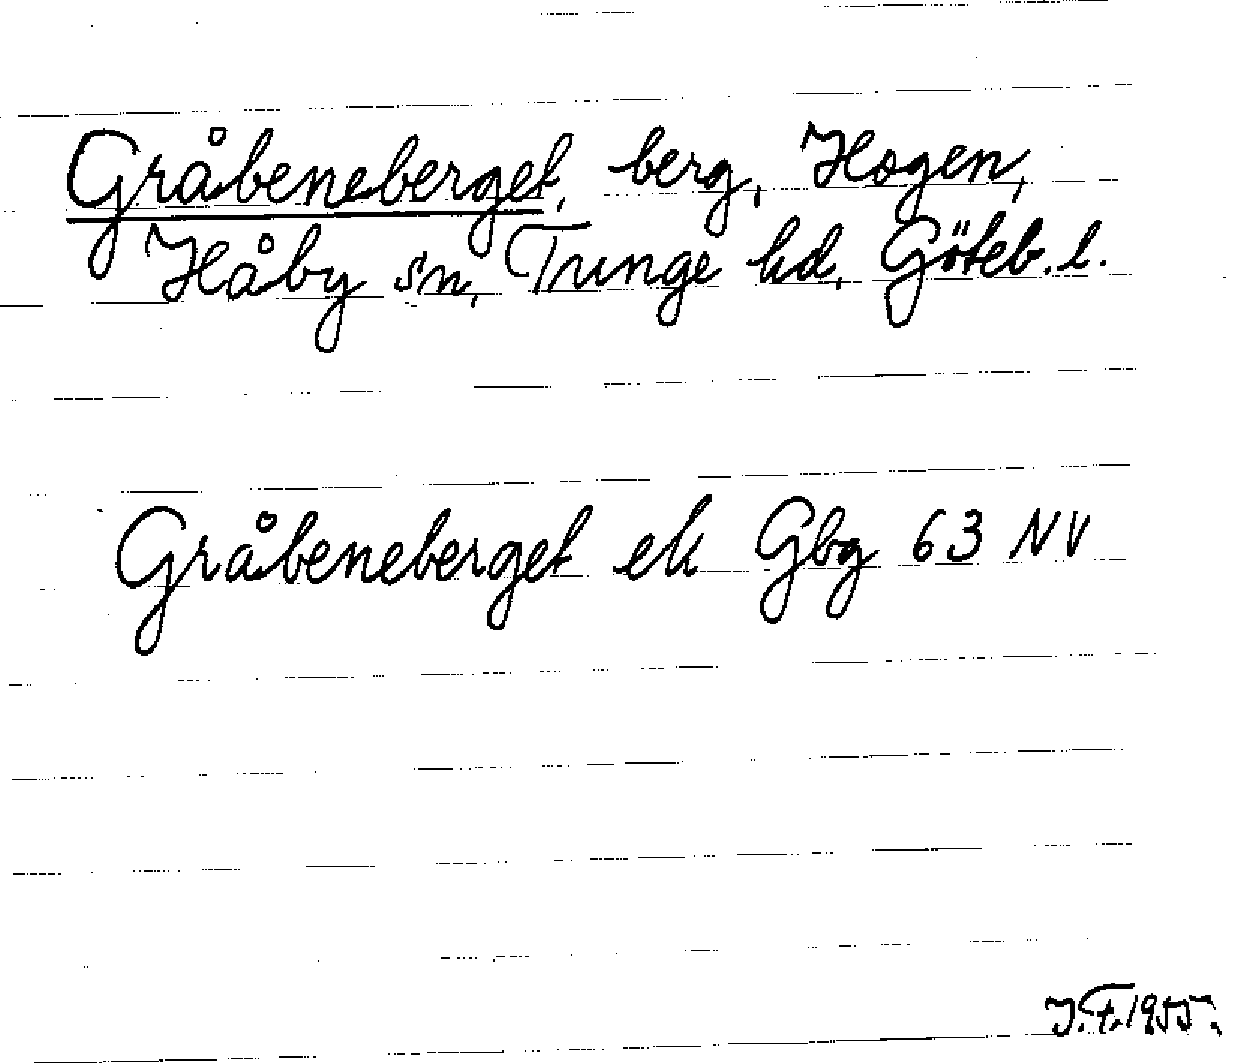 Gråbeneberget, berg, Hogen,
Håby sn, Tunge hd, Göteb. l.
Gråbeneberget ek Gbg 63 NV
J.F. 1955.